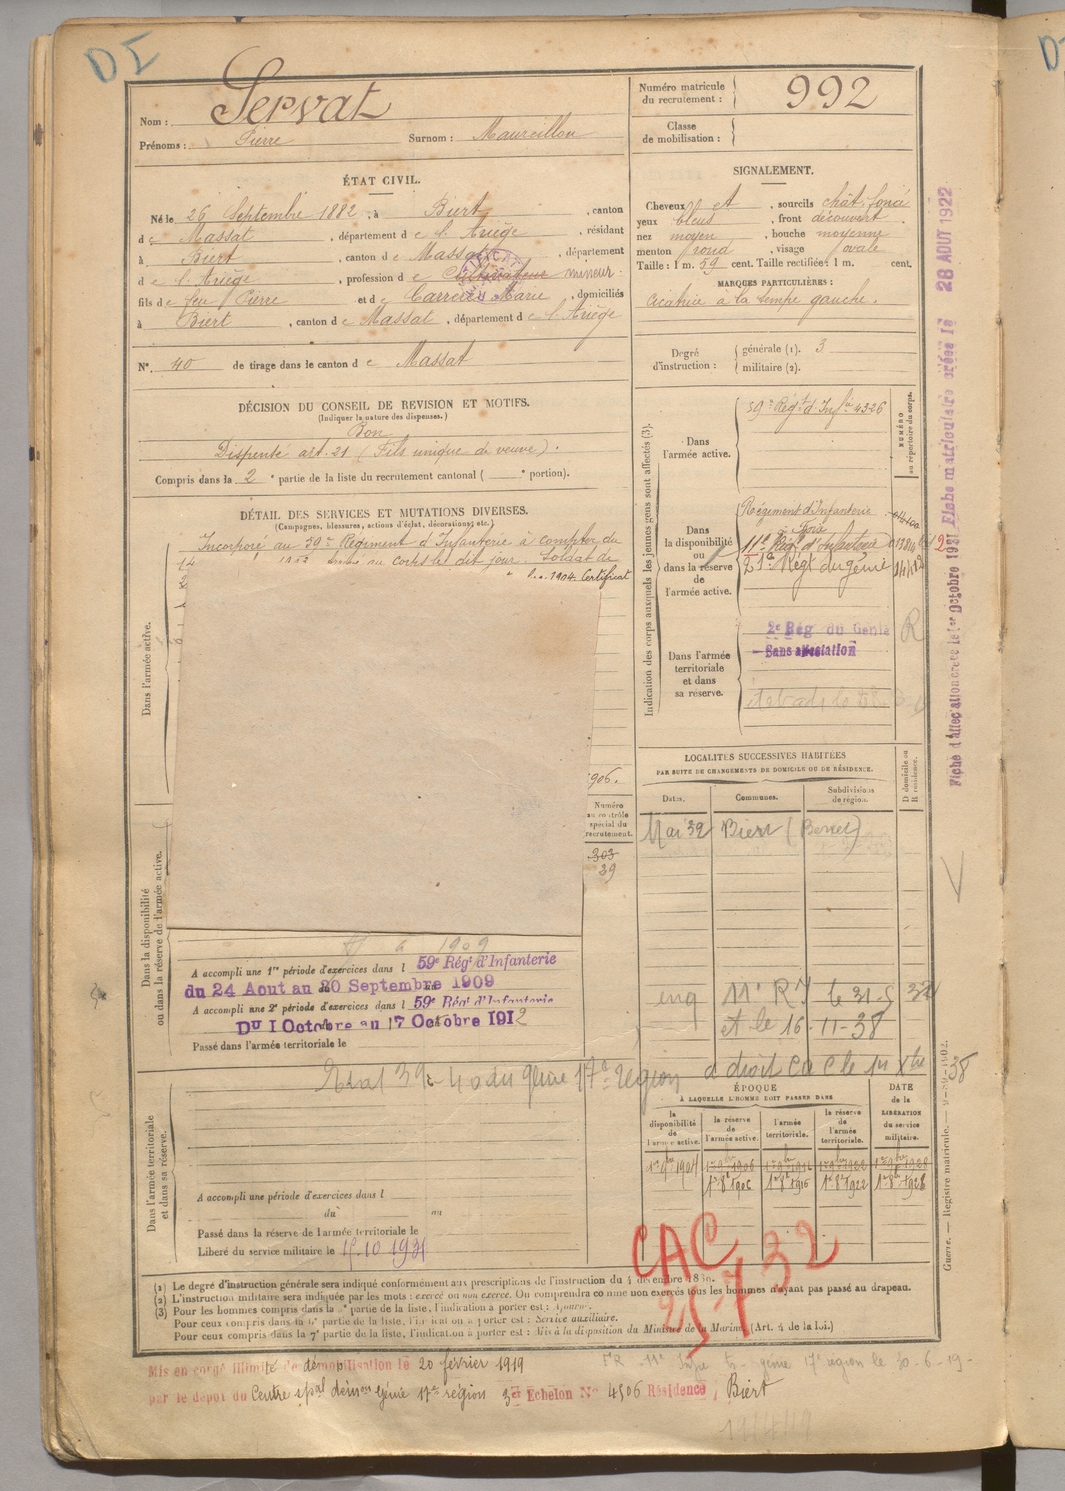 DI
Nom : Servat
Prénoms : Pierre Surnom : Maureillou
Numéro matricule du recrutement : 992
Classe de mobilisation :
ÉTAT CIVIL.
Né le 26 Septembre 1882, à Biert, canton
de Massat, département de l'Ariège, résidant
à Biert, canton de Massat, département
de l'Ariège, profession de Cultivateur mineur.
fils de feu Pierre et de Carrere Marie, domiciliés
à Biert, canton de Massat, département de l'Ariège
N°. 40 de tirage dans le canton de Massat
SIGNALEMENT.
Cheveux et, sourcils chât. foncé
yeux bleus, front découvert.
nez moyen, bouche moyenne
menton rond, visage ovale
Taille : 1 m. 59 cent. Taille rectifiée : 1 m. cent.
MARQUES PARTICULIÈRES :
Cicatrice à la tempe gauche.
Degré d'instruction : générale (1). 3
militaire (2).
DÉCISION DU CONSEIL DE REVISION ET MOTIFS.
(Indiquer la nature des dispenses.)
Bon
Dispensé art. 21 (Fils unique de veuve).
Compris dans la 2e partie de la liste du recrutement cantonal ( e portion).
DÉTAIL DES SERVICES ET MUTATIONS DIVERSES.
(Campagnes, blessures, actions d'éclat, décorations, etc.)
Incorporé au 59e Régiment d'Infanterie à compter du
14 au corps le dit jour. Soldat de
1904. Certificat
906.
Dans l'armée active.
Numéro au contrôle spécial du recrutement.
303
39
Dans la disponibilité ou dans la réserve de l'armée active.
1909
A accompli une 1re période d'exercices dans l 59e Régt d'Infanterie
du 24 Aout au 20 Septembre 1909
A accompli une 2e période d'exercices dans l 59e Régt d'Infanterie
Du 1 Octobre au 17 Octobre 1912
Passé dans l'armée territoriale le
Dans l'armée territoriale et dans sa réserve.
A accompli une période d'exercices dans l
du au
Passé dans la réserve de l'armée territoriale le
Libéré du service militaire le 15.10.1931
Indication des corps auxquels les jeunes gens sont affectés (3).
NUMÉRO au répertoire du corps.
Dans l'armée active.
59e Régt d'Infie 4326
Dans la disponibilité ou dans la réserve de l'armée active.
Régiment d'Infanterie
Foix
11e Régt d'Infanterie
21e Régt du génie
Dans l'armée territoriale et dans sa réserve.
2e Rég du Génie
Sans affectation
R
LOCALITÉS SUCCESSIVES HABITÉES
PAR SUITE DE CHANGEMENTS DE DOMICILE OU DE RÉSIDENCE.
Dates. Communes. Subdivisions de région. D domicile ou R résidence.
Mai 32 Biert
11e RI le 31-5
et le 16-11-38
a droit CAC le
38
ÉPOQUE
À LAQUELLE L'HOMME DOIT PASSER DANS
la disponibilité de l'armée active. la réserve de l'armée active. l'armée territoriale. la réserve de l'armée territoriale. DATE de la LIBÉRATION du service militaire.
1er 9bre 1904 1er 9bre 1906 1er 9bre 1916 1er 9bre 1922 1er 9bre 1928
1er 8bre 1906 1er 8bre 1916 1er 8bre 1922 1er 8bre 1928
CAC
25732
(1) Le degré d'instruction générale sera indiqué conformément aux prescriptions de l'instruction du 4 décembre 1889.
(2) L'instruction militaire sera indiquée par les mots : exercé ou non exercé. On comprendra comme non exercés tous les hommes n'ayant pas passé au drapeau.
(3) Pour les hommes compris dans la e partie de la liste, l'indication à porter est : Ajourné.
Pour ceux compris dans la 6e partie de la liste, l'indication à porter est : Service auxiliaire.
Pour ceux compris dans la 7e partie de la liste, l'indication à porter est : Mis à la disposition du Ministre de la Marine (Art. 4 de la loi.)
Mis en congé illimité de démobilisation le 20 février 1919
par le dépôt du Centre spal démon Génie 17e région 3e Echelon N° 4506 Résidence Biert
génie 17e région le 30-6-19
Guerre. — Registre matricule. — 1902.
Fiche d'affectation créée le 1er Octobre 1921 Fiche matriculaire créée le 28 AOUT 1922